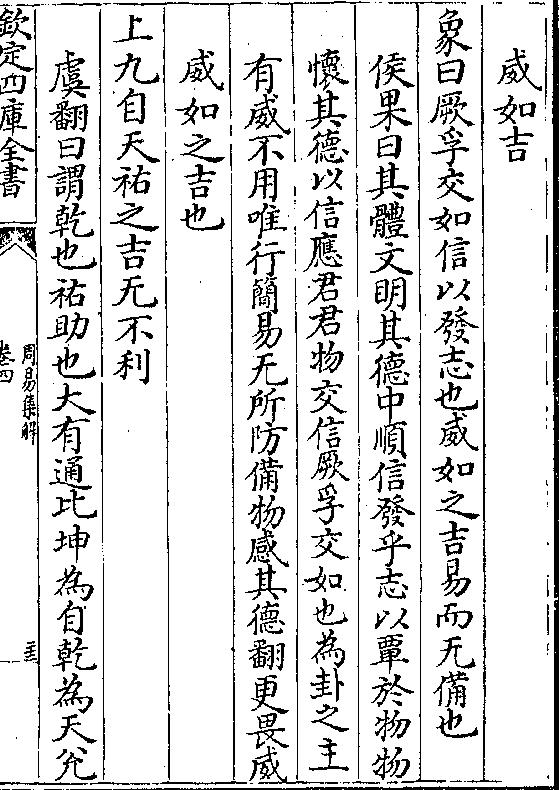 威如吉
象曰厥孚交如信以發志也威如之吉易而无備也
侯果曰其體文明其德中順信發乎志以覃於物物
懷其德以信應君君物交信厥孚交如也為卦之主
有威不用唯行簡易无所防備物感其德翻更畏威
威如之吉也
上九自天祐之吉无不利
虞翻曰謂乾也祐助也大有通比坤為自乾為天兊
欽定四庫全書
周易集解
卷四